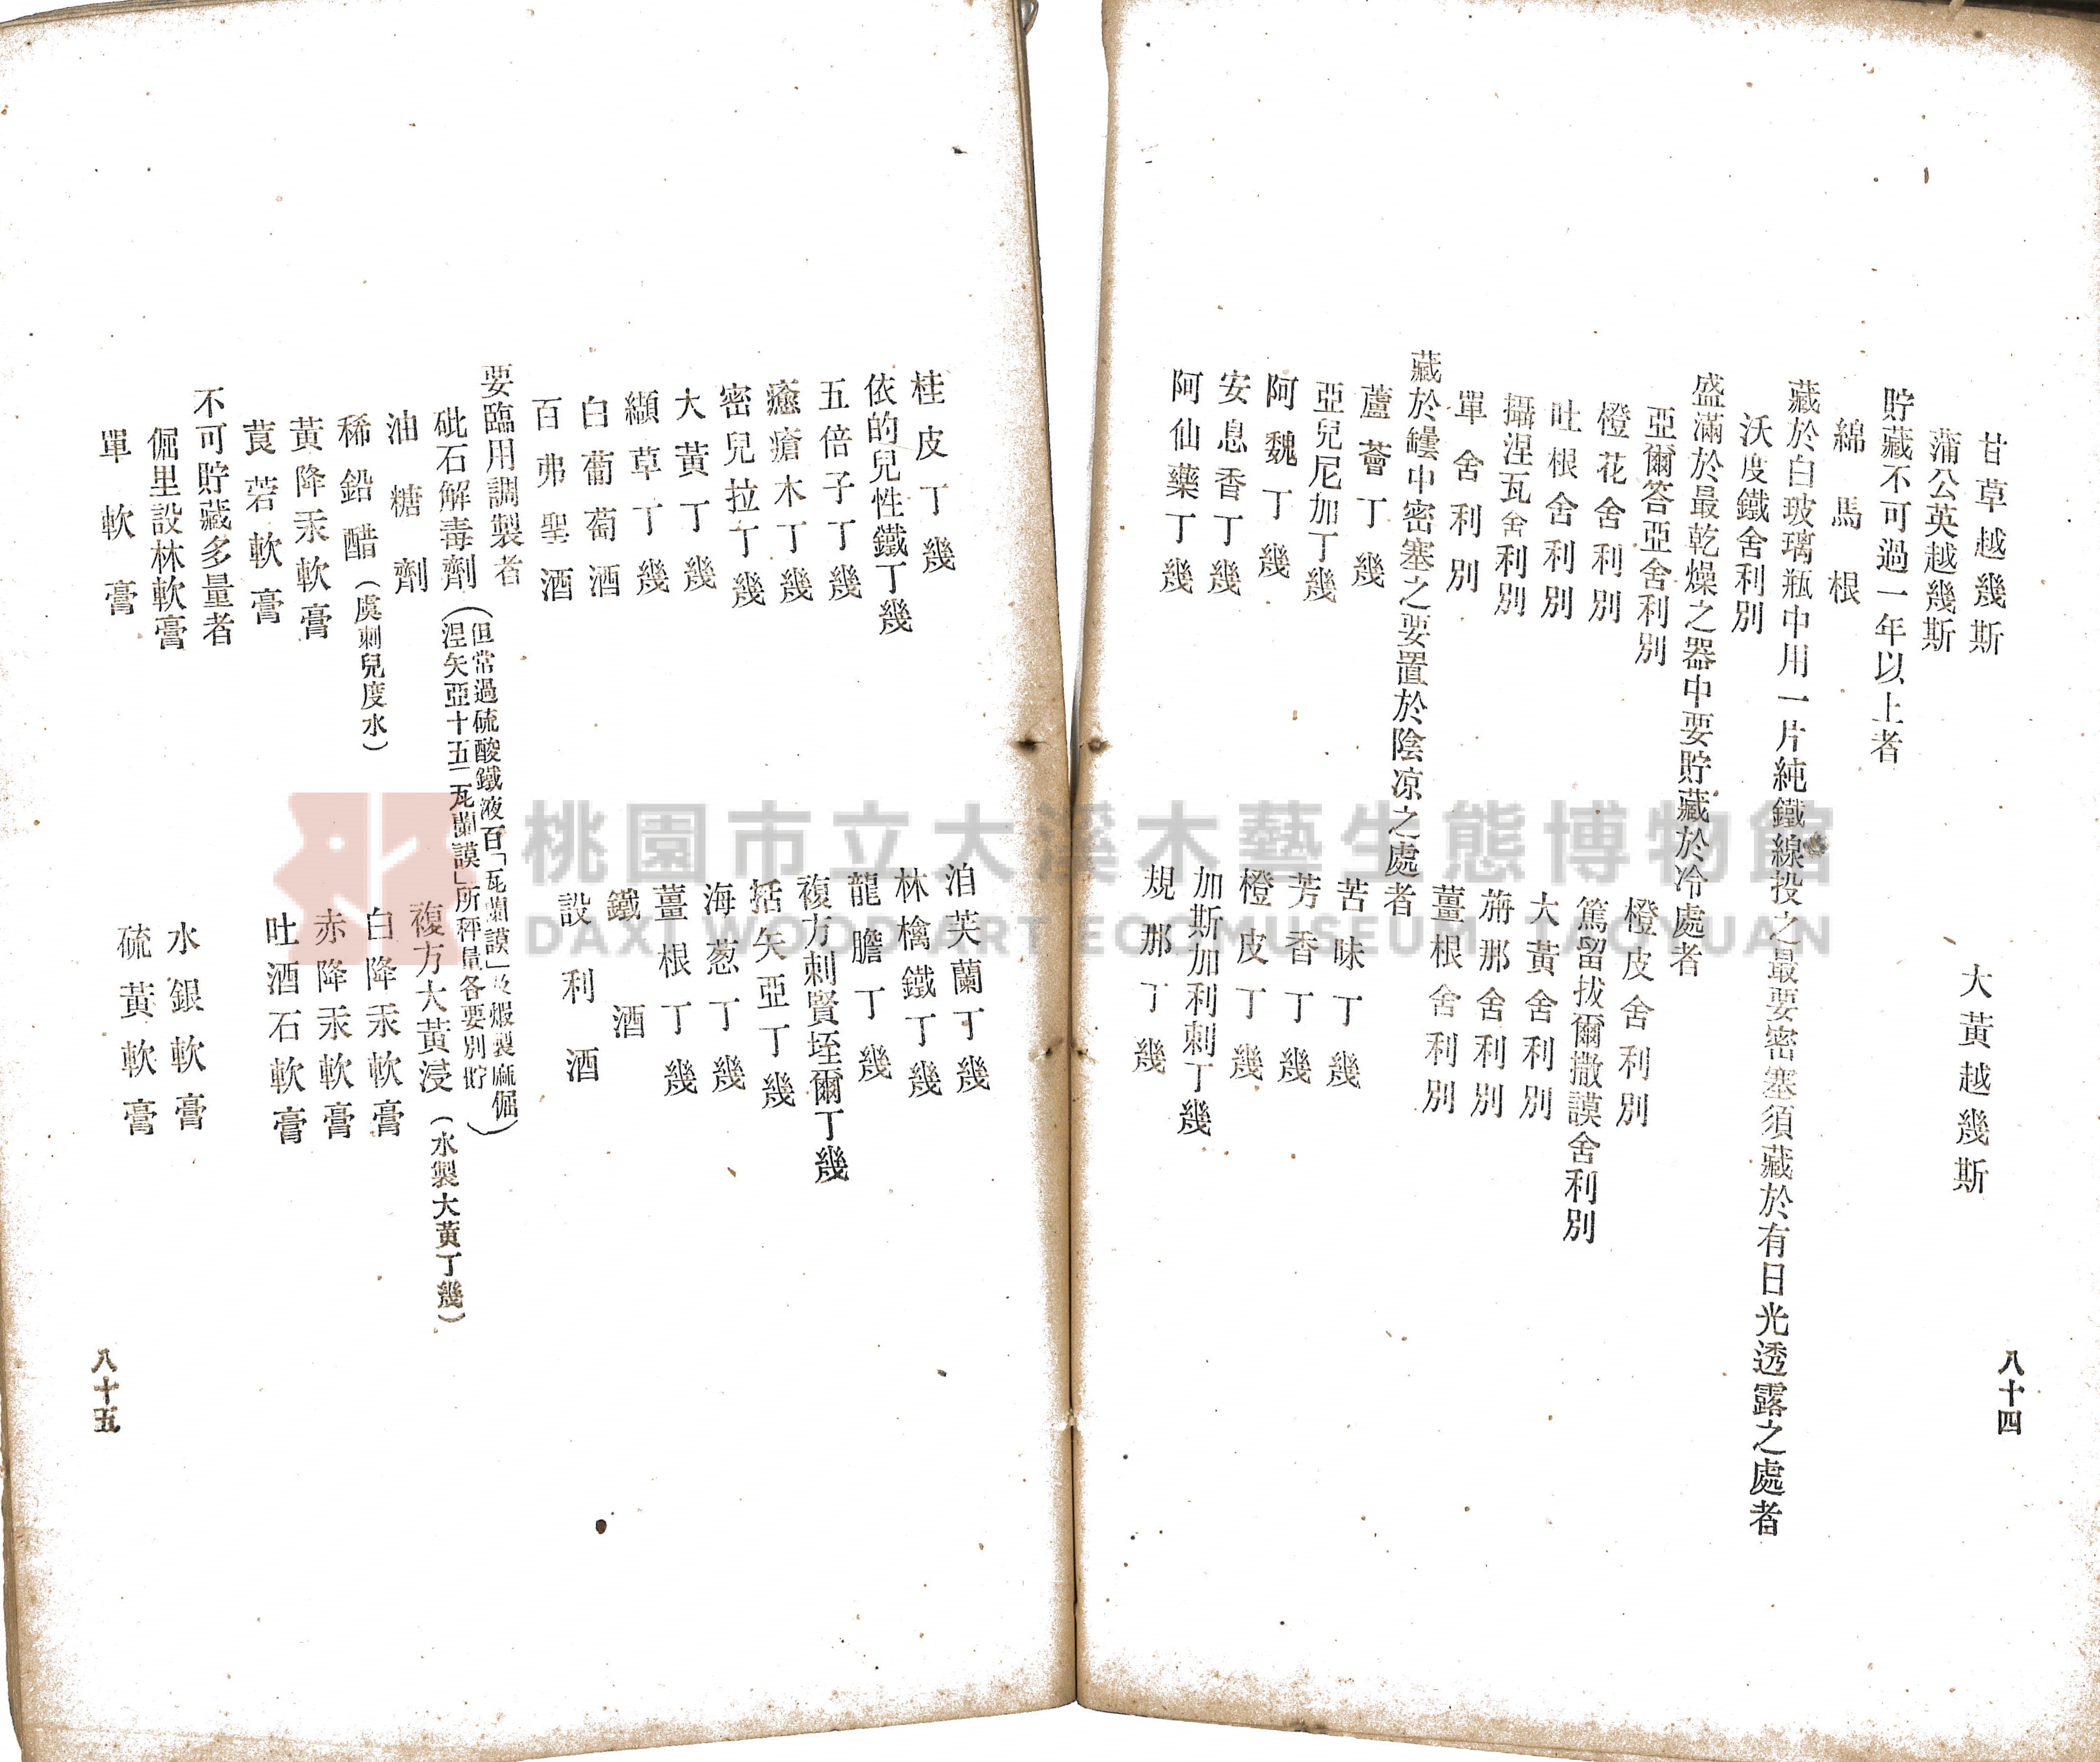 甘草越幾斯　大黃越幾斯
蒲公英越幾斯
貯藏不可過一年以上者
綿馬根
藏於白玻璃瓶中用一片純鐵線投之最要密塞須藏於有日光透露之處者
沃度鐵舍利別
盛滿於最乾燥之器中要貯藏於冷處者
亞爾答亞舍利別　橙皮舍利別
橙花舍利別　篤留拔爾撒謨舍利別
吐根舍利別　大黃舍利別
攝涅瓦舍利別　那舍利別
單舍利別　薑根舍利別
藏於罎中密塞之要置於陰凉之處者
蘆薈丁幾　苦味丁幾
亞兒尼加丁幾　芳香丁幾
阿魏丁幾　橙皮丁幾
安息香丁幾　加斯加利刺丁幾
阿仙藥丁幾　規那丁幾
八十四
桂皮丁幾　泊芙蘭丁幾
依的兒性鐵丁幾　林檎鐵丁幾
五倍子丁幾　龍膽丁幾
癒瘡木丁幾　複方刺賢垤爾丁幾
密兒拉丁幾　括矢亞丁幾
大黃丁幾　海葱丁幾
纈草丁幾　薑根丁幾
白葡萄酒　鐵酒
百弗聖酒　設利酒
要臨用調製者
砒石解毒劑（但常過硫酸鐵液百「瓦蘭謨」及煆製麻倔
涅矢亞十五「瓦蘭謨」所秤量各要別貯）
油糖劑　複方大黃浸（水製大黃丁幾）
稀鉛醋（虞刺兒度水）
黃降汞軟膏　白降汞軟膏
莨菪軟膏　赤降汞軟膏
吐酒石軟膏
不可貯藏多量者
倔里設林軟膏　水銀軟膏
單軟膏　硫黃軟膏
八十五
桃園市立大溪木藝生態博物館
DAXI WOOD ART ECOMUSEUM, TAOYUAN